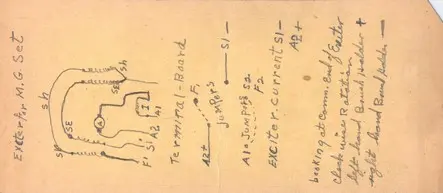 Exciter for M.G. Set
Sh
Sh
SE
SE
Sh
A
I
A1
F1 S1 A2
Terminal-Board
A2+ F1
Jumpers
S1-
A1 a Jumpers S2
F2
Exciter-Current S1-
A2+
Looking at Comm. End of Exciter
Clock wise Rotation
left hand Brush Holder +
right hand Brush Holder -